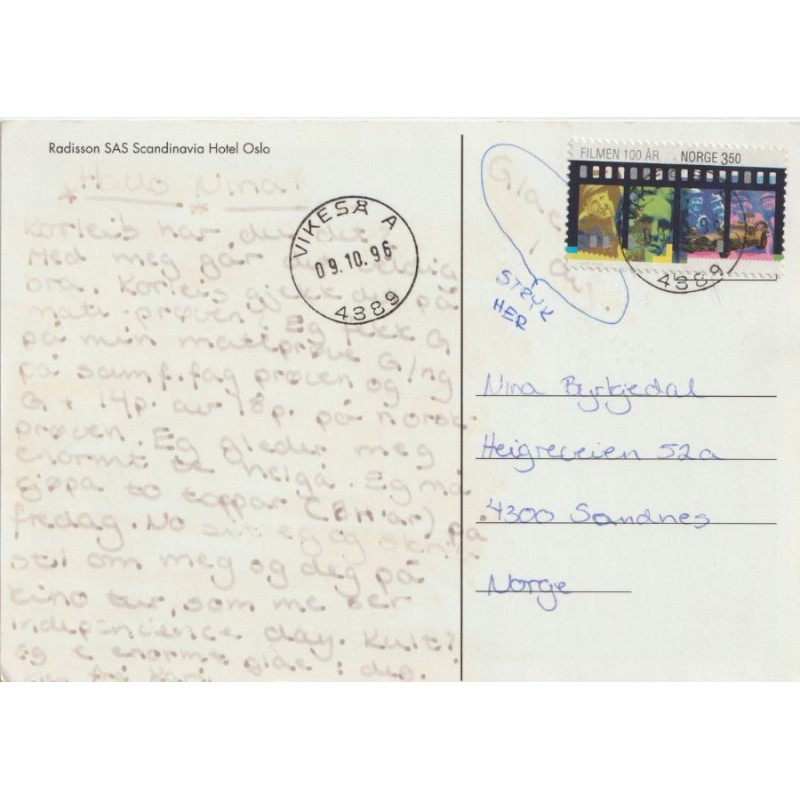 Radisson SAS Scandinavia Hotel Oslo
Hallo Nina!
Korleis har du det?
Med meg går det
bra. Korleis gjekk du på
matteprøven? Eg fekk G
på min matteprøve G/ng
på samf.fag prøven og
G + 14p. av 18p. på norsk-
prøven. Eg gleder meg
enormt te helgå. Eg må
kjøpa to toppar (BH'ar) på
fredag. No sit eg og skriv
stil om meg og deg på
kino tur, som me ser
independence day. Kult?
eg e enormt glae i deg.
frå Kari
VIKESÅ A
09.10.96
4389
FILMEN 100 ÅR NORGE 350
4389
Glae
i
STRYK
HER
Nina Byrkjedal
Heigreveien 52a
4300 Sandnes
Norge